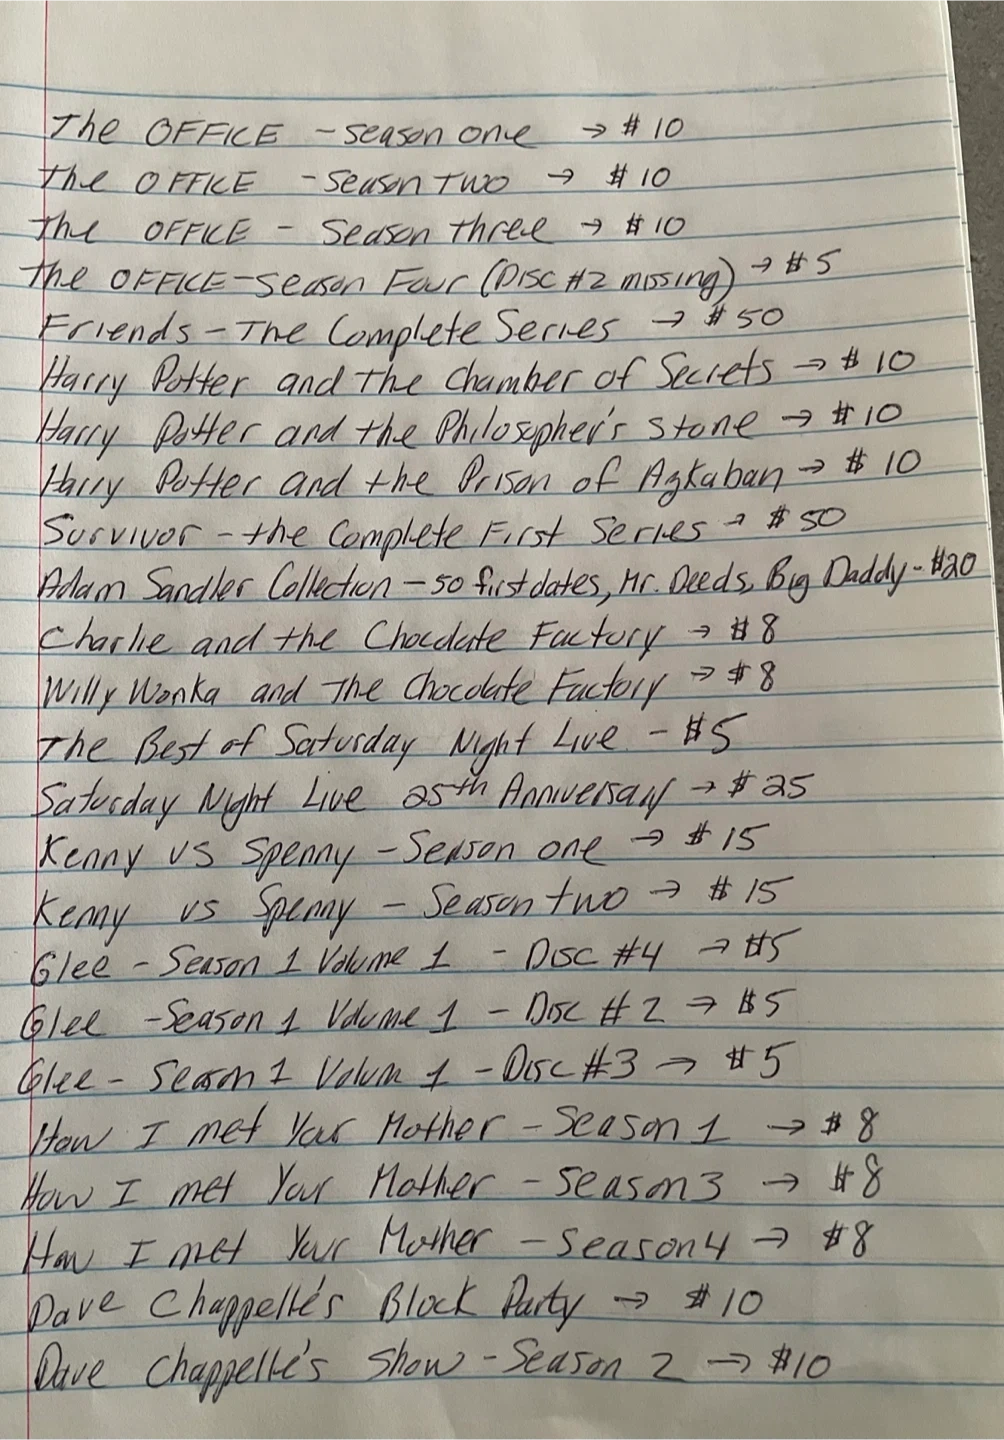 The OFFICE - Season one → $10
The OFFICE - Season TWO → $10
The OFFICE - Season three → $10
The OFFICE - Season Four (Disc #2 missing) → $5
Friends - The Complete Series → $50
Harry Potter and the Chamber of Secrets → $10
Harry Potter and the Philosopher's Stone → $10
Harry Potter and the Prison of Azkaban → $10
Survivor - the Complete First Series → $50
Adam Sandler Collection - 50 first dates, Mr. Deeds, Big Daddy - $20
Charlie and the Chocolate Factory → $8
Willy Wonka and The Chocolate Factory → $8
The Best of Saturday Night Live - $5
Saturday Night Live 25th Anniversary → $25
Kenny vs Spenny - Season one → $15
Kenny vs Spenny - Season two → $15
Glee - Season 1 Volume 1 - Disc #4 → $5
Glee - Season 1 Volume 1 - Disc #2 → $5
Glee - Season 1 Volum 1 - Disc #3 → $5
How I met Your Mother - Season 1 → $8
How I met Your Mother - Season 3 → $8
How I met Your Mother - Season 4 → $8
Dave Chappelle's Block Party → $10
Dave Chappelle's Show - Season 2 → $10